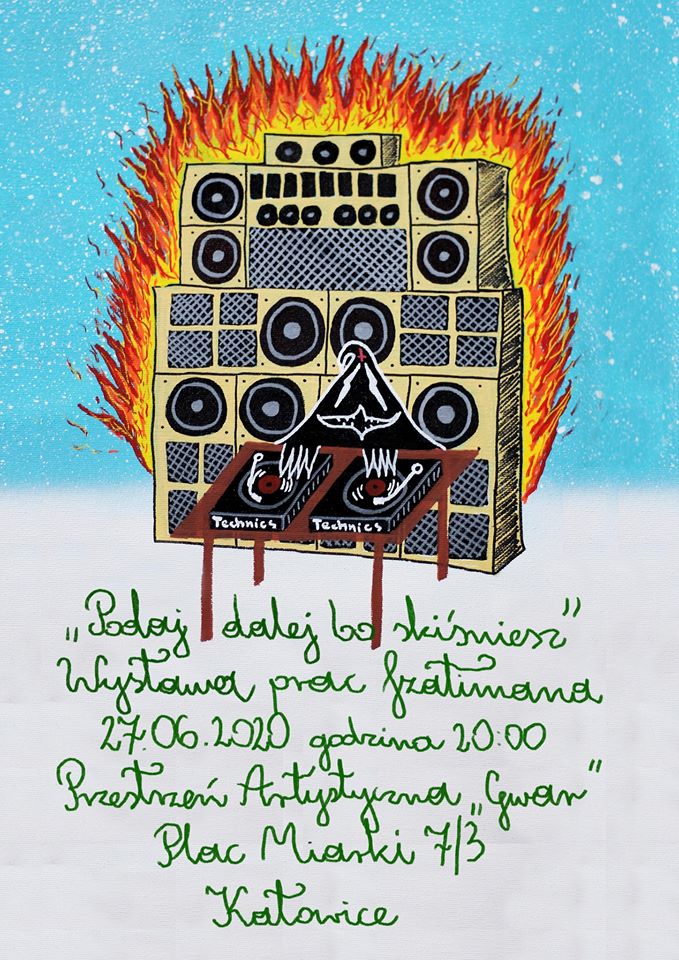 Technics Technics
„Podaj dalej bo skiśniesz”
Wystawa prac fzatimana
27.06.2020 godzina 20:00
Przestrzeń Artystyczna „Gwar”
Plac Miarki 7/3
Katowice